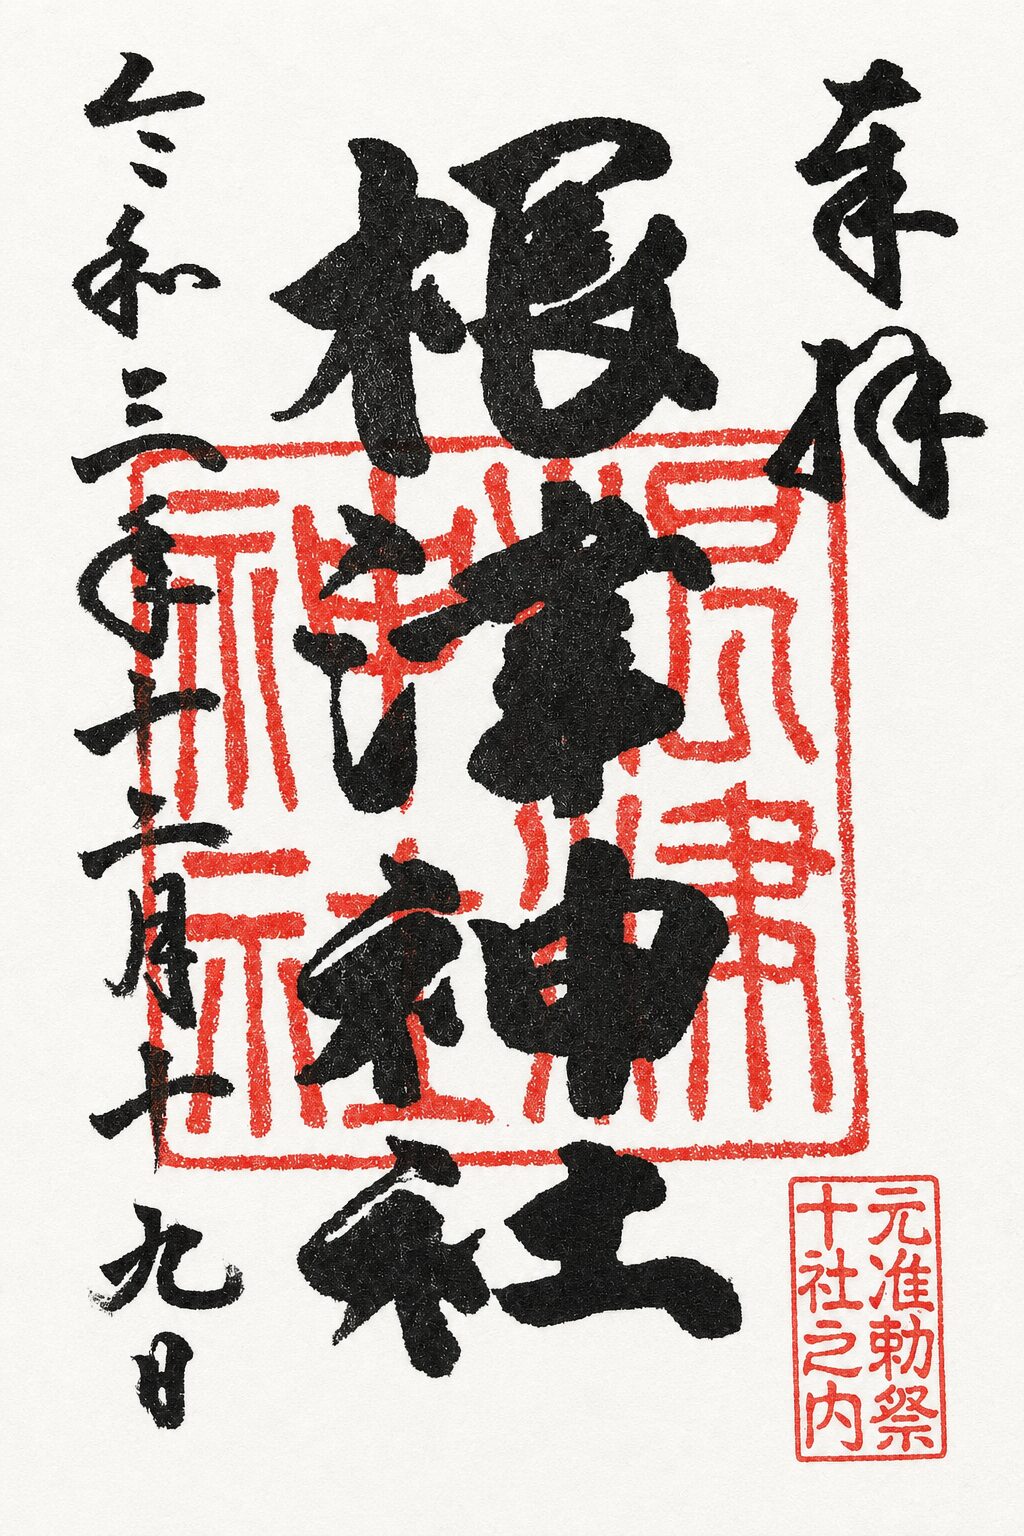 奉拝
根津神社
令和三年十二月十九日
根津神社
元准勅祭
十社之内